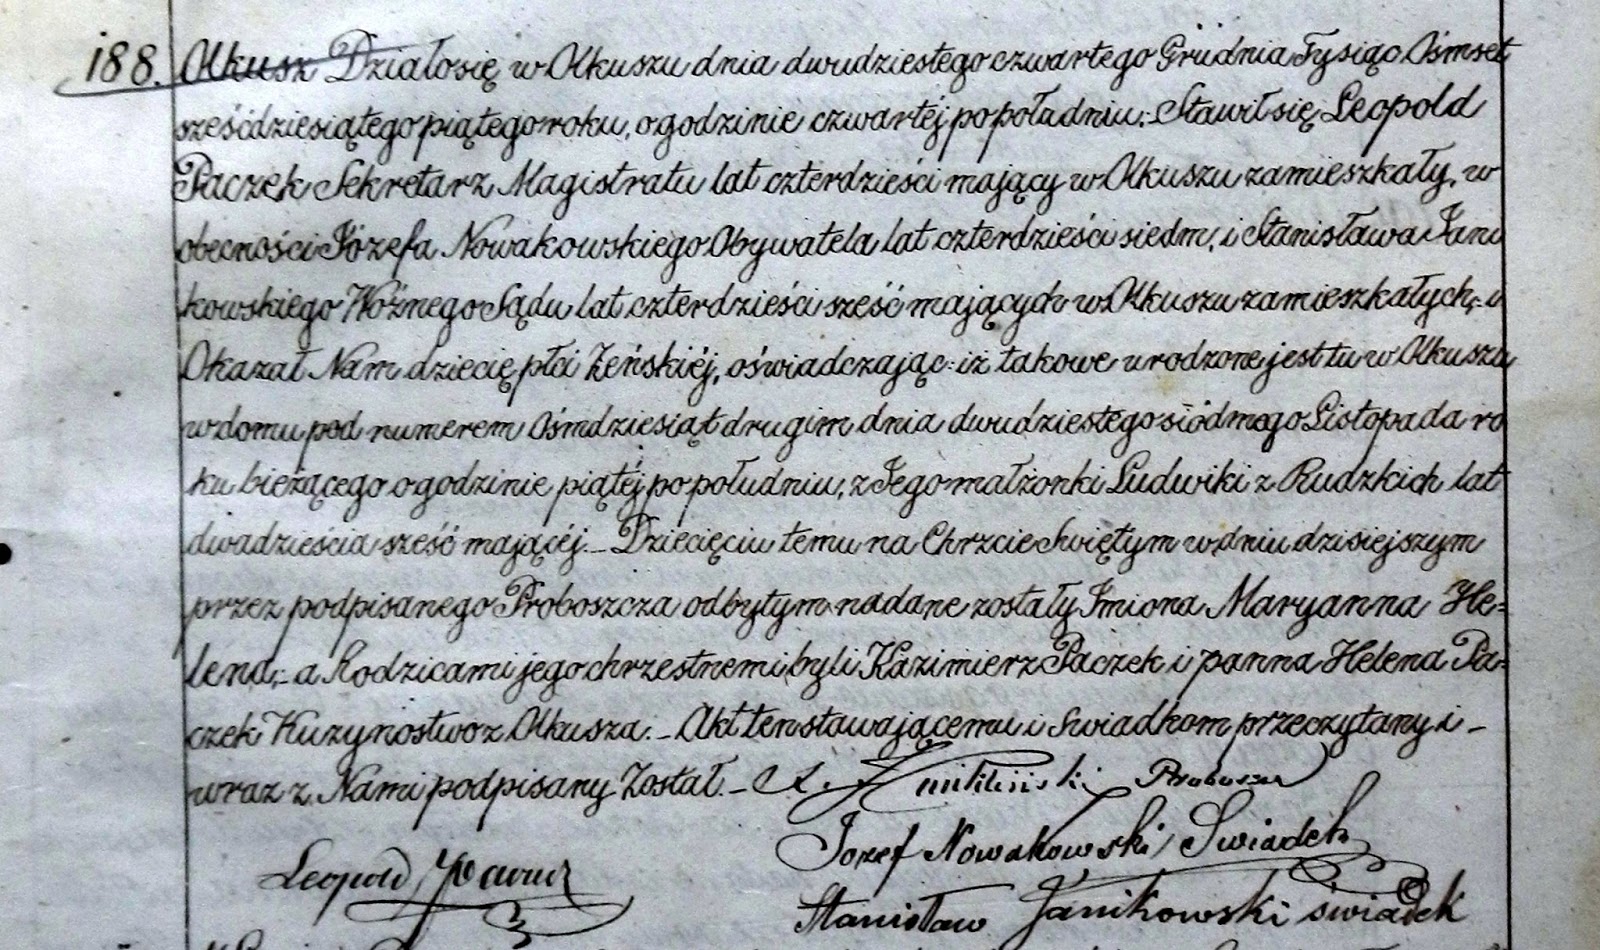 188. Olkusz Działosię w Olkuszu dnia dwudziestego czwartego Grudnia Tysiąc Ośmset
sześćdziesiątego piątego roku, o godzinie czwartéj popołudniu:- Stawił się Leopold
Paczek Sekretarz Magistratu lat czterdzieści mający w Olkuszu zamieszkały, w
obecności Józefa Nowakowskiego Obywatela lat czterdzieści siedm, i Stanisława Jani
kowskiego Woźnego Sądu lat czterdzieści sześć mających w Olkuszu zamieszkałych, i
Okazał Nam dziecię płci Żeńskiéj, oświadczając: iż takowe urodzone jest tu w Olkuszu
w domu pod numerem Ośmdziesiąt drugim dnia dwudziestego siódmego Listopada ro
ku bieżącego o godzinie piątéj po południu, z Jego małżonki Ludwiki z Rudzkich lat
dwadzieścia sześć mającéj.- Dziecięciu temu na Chrzcie Świętym w dniu dzisiejszym
przez podpisanego Proboszcza odbytym nadane zostały Imiona Maryanna He-
lena,- a Rodzicami jego chrzestnemi byli Kazimierz Paczek i panna Helena Pa-
czek Kuzynostwo z Olkusza.- Akt ten stawającemu i Świadkom przeczytany i -
wraz z Nami podpisany Został.- Proboszcz
Jozef Nowakowski Swiadek
Leopold Paczek
Stanisław Janikowski świadek